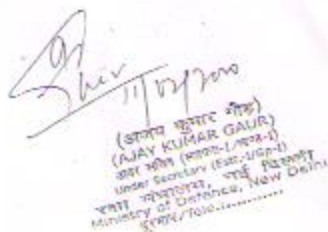 11/02/2010
(अजय कुमार गौड़)
(AJAY KUMAR GAUR)
अवर सचिव
Under Secretary
रक्षा मंत्रालय, नई दिल्ली
Ministry of Defence, New Delhi
दूरभाष/Tele..............